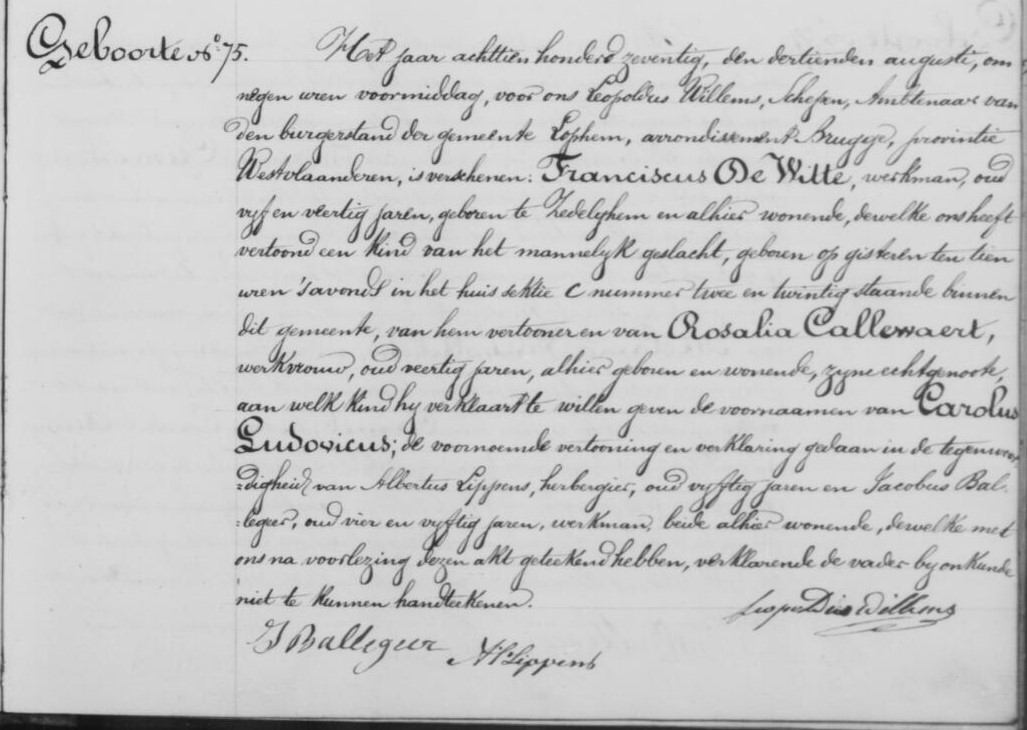 Geboorte No 75.
Het jaar achttien honderd zeventig, den dertienden augusti, om
negen uren voormiddag, voor ons Leopoldus Willems, Schepen, Ambtenaar van
den burgerstand der gemeente Lophem, arrondissement Brugge, provintie
Westvlaanderen, is verschenen: Franciscus De Witte, werkman, oud
vyf en veertig jaren, geboren te Zedelghem en alhier wonende, dewelke ons heeft
vertoond een kind van het mannelyk geslacht, geboren op gisteren ten tien
uren 'savonds in het huis sektie C nummer twee en twintig staande binnen
dit gemeente, van hem vertooner en van Rosalia Callewaert,
werkvrouw, oud veertig jaren, alhier geboren en wonende, zyne echtgenoote,
aan welk kind hy verklaart te willen geven de voornaamen van Carolus
Ludovicus; de voornoemde vertooning en verklaring gedaan in de tegenwoor-
-digheid van Albertus Lippens, herbergier, oud vyftig jaren en Jacobus Bal-
-legeer, oud vier en vyftig jaren, werkman, beide alhier wonende, dewelke met
ons na voorlezing dezen akt geteekend hebben, verklarende de vader by onkunde
niet te kunnen handteekenen.
Leopoldus Willems
J Ballegeer
Al Lippens